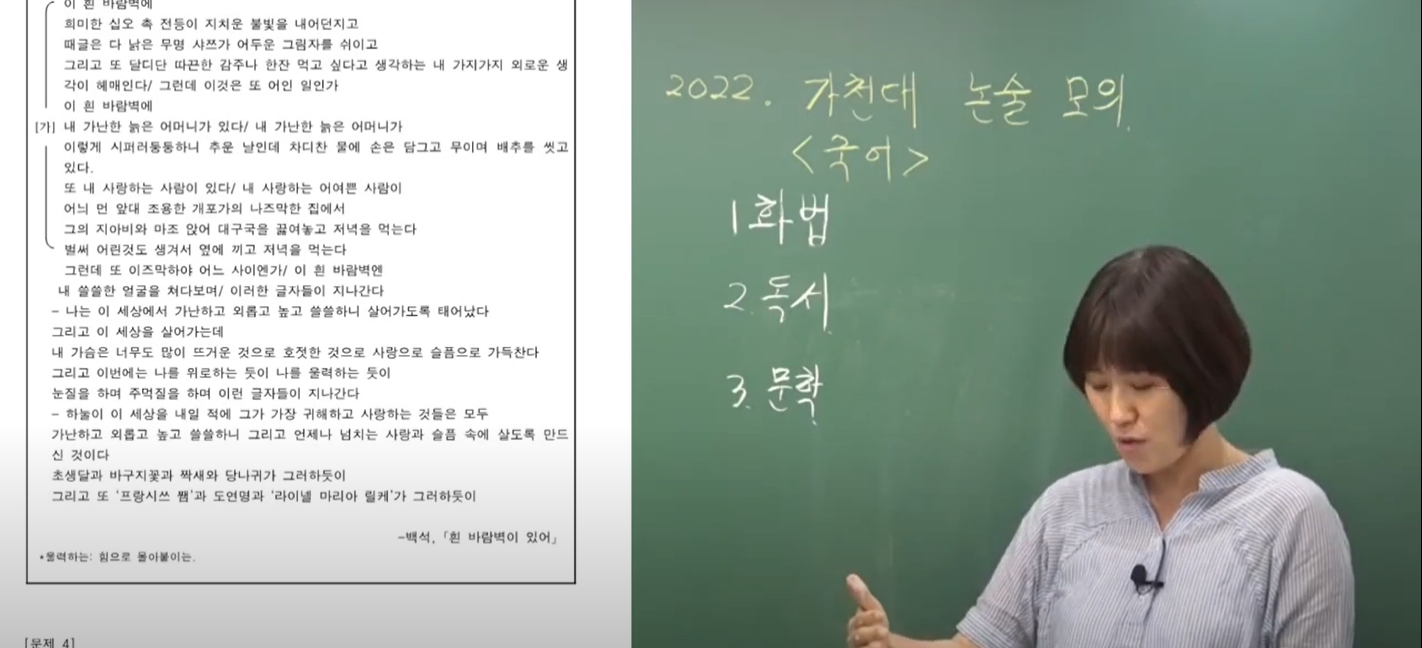 이 흰 바람벽에
희미한 십오 촉 전등이 지치운 불빛을 내어던지고
때글은 다 낡은 무명 샤쯔가 어두운 그림자를 쉬이고
그리고 또 달디단 따끈한 감주나 한잔 먹고 싶다고 생각하는 내 가지가지 외로운 생
각이 헤매인다/ 그런데 이것은 또 어인 일인가
이 흰 바람벽에
[가] 내 가난한 늙은 어머니가 있다/ 내 가난한 늙은 어머니가
이렇게 시퍼러둥둥하니 추운 날인데 차디찬 물에 손은 담그고 무이며 배추를 씻고
있다.
또 내 사랑하는 사람이 있다/ 내 사랑하는 어여쁜 사람이
어늬 먼 앞대 조용한 개포가의 나즈막한 집에서
그의 지아비와 마조 앉어 대구국을 끓여놓고 저녁을 먹는다
벌써 어린것도 생겨서 옆에 끼고 저녁을 먹는다
그런데 또 이즈막하야 어느 사이엔가/ 이 흰 바람벽엔
내 쓸쓸한 얼굴을 쳐다보며/ 이러한 글자들이 지나간다
- 나는 이 세상에서 가난하고 외롭고 높고 쓸쓸하니 살어가도록 태어났다
그리고 이 세상을 살어가는데
내 가슴은 너무도 많이 뜨거운 것으로 호젓한 것으로 사랑으로 슬픔으로 가득찬다
그리고 이번에는 나를 위로하는 듯이 나를 울력하는 듯이
눈질을 하며 주먹질을 하며 이런 글자들이 지나간다
- 하눌이 이 세상을 내일 적에 그가 가장 귀해하고 사랑하는 것들은 모두
가난하고 외롭고 높고 쓸쓸하니 그리고 언제나 넘치는 사랑과 슬픔 속에 살도록 만드
신 것이다
초생달과 바구지꽃과 짝새와 당나귀가 그러하듯이
그리고 또 '프랑시쓰 쨈'과 도연명과 '라이넬 마리아 릴케'가 그러하듯이
-백석,「흰 바람벽이 있어」
*울력하는: 힘으로 몰아붙이는.
[문제 4]
2022. 가천대 논술 모의.
<국어>
1 화법
2. 독서.
3. 문학.